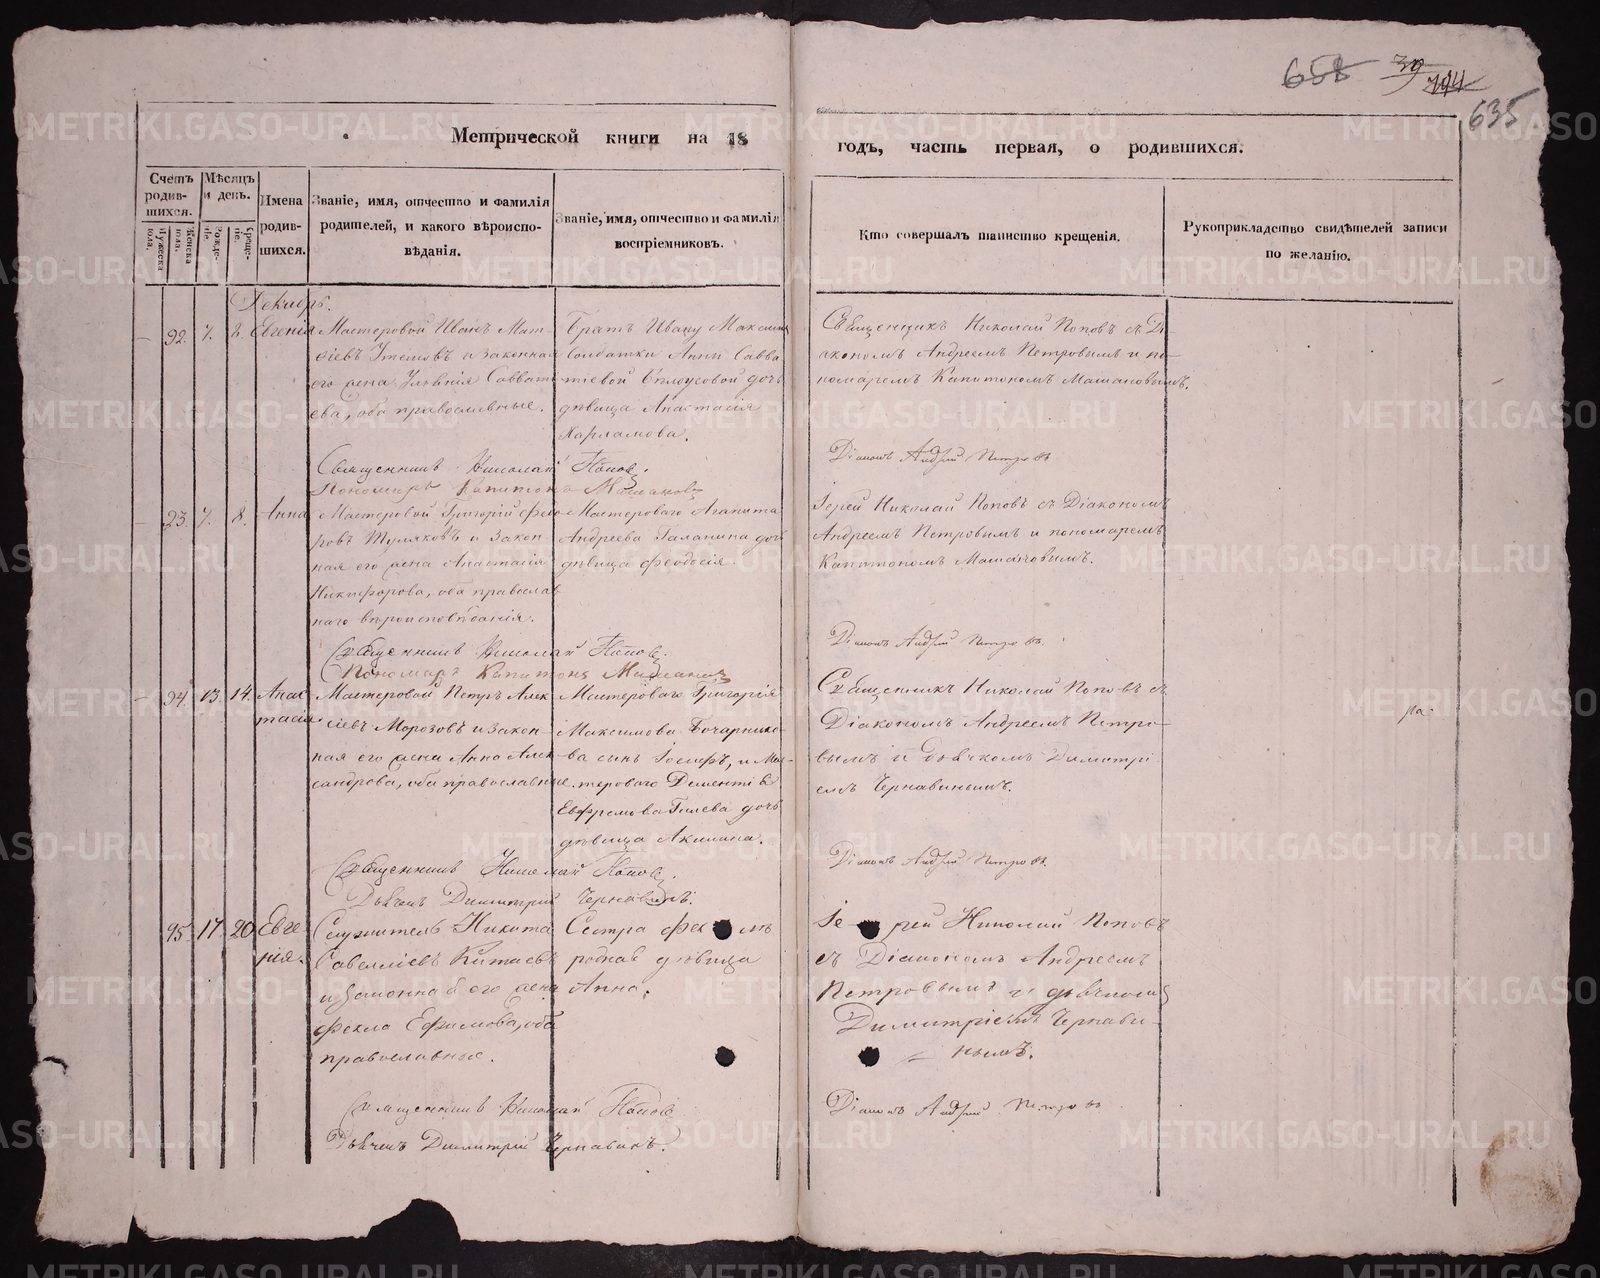 658 39
794
635
Метрической книги на 18 годъ, часть первая, о родившихся.
Счетъ родив-шихся.
Мужеска пола.
Женска пола.
Мѣсяцъ и день.
Рожде-ніе.
Креще-ніе.
Имена родив-шихся.
Званіе, имя, отчество и фамилія
родителей, и какого вѣроиспо-
вѣданія.
Званіе, имя, отчество и фамилія
воспріемниковъ.
Кто совершалъ таинство крещенія.
Рукоприкладство свидѣтелей записи
по желанію.
Декабрь.
92. 7. 8. Евгенія
Мастеровой Иванъ Мат-
ѳіевъ и законная
его жена Савват
ева, оба православные.
Братъ Ивану Максимъ
Солдатки Анны Савва
тіевой Бѣлоусовой дочь
дѣвица Анастасія
Харламова.
Священникъ Николай Поповъ съ Ді
акономъ Андреемъ Петровымъ и по-
номаремъ Капитономъ Машановымъ.
Священникъ Николай Попов.
Пономарь Капитонъ Машановъ
Діаконъ Андрей Петровъ
23. 7. 8. Анна
Мастеровой Григорій Ѳедо
ровъ Туляковъ и закон
ная его жена Анастасія
Никифорова, оба православ
наго вѣроисповѣданія.
Мастероваго Агапита
Андреева Галанина дочь
дѣвица Ѳеодосія.
Іерей Николай Поповъ съ Діакономъ
Андреемъ Петровымъ и пономаремъ
Капитономъ Машановымъ.
Священникъ Николай Попов.
Пономарь Капитонъ Машановъ
Діаконъ Андрей Петровъ.
94. 13. 14. Анас
тасія
Мастеровой Петръ Алек
сіевъ Морозовъ и закон-
ная его жена Анна Алек
сандрова, оба православные.
Мастероваго Григорія
Максимова Бочарнико-
ва сынъ Іосифъ, и Мас-
тероваго Дементія
Ефремова Гилева дочь
дѣвица Акилина.
Священникъ Николай Поповъ съ
Діакономъ Андреемъ Петро-
вымъ и дьячкомъ Димитрі
емъ Чернавинымъ.
Священникъ Николай Попов.
Дьячекъ Димитрій Чернавинъ.
Діаконъ Андрей Петровъ.
95. 17. 20. Евге
нія.
Служитель Никита
Савелліевъ Китаевъ
и законная его жена
Ѳекла Ефимова, оба
православные.
Сестра
родная дѣвица
Анна.
Іерей Николай Поповъ
съ Діакономъ Андреемъ
Петровымъ и дьячкомъ
Димитріемъ Чернави-
нымъ.
Священникъ Николай Попов
Дьячекъ Димитрій Чернавинъ.
Діаконъ Андрей Петровъ
METRIKI.GASO-URAL.RU